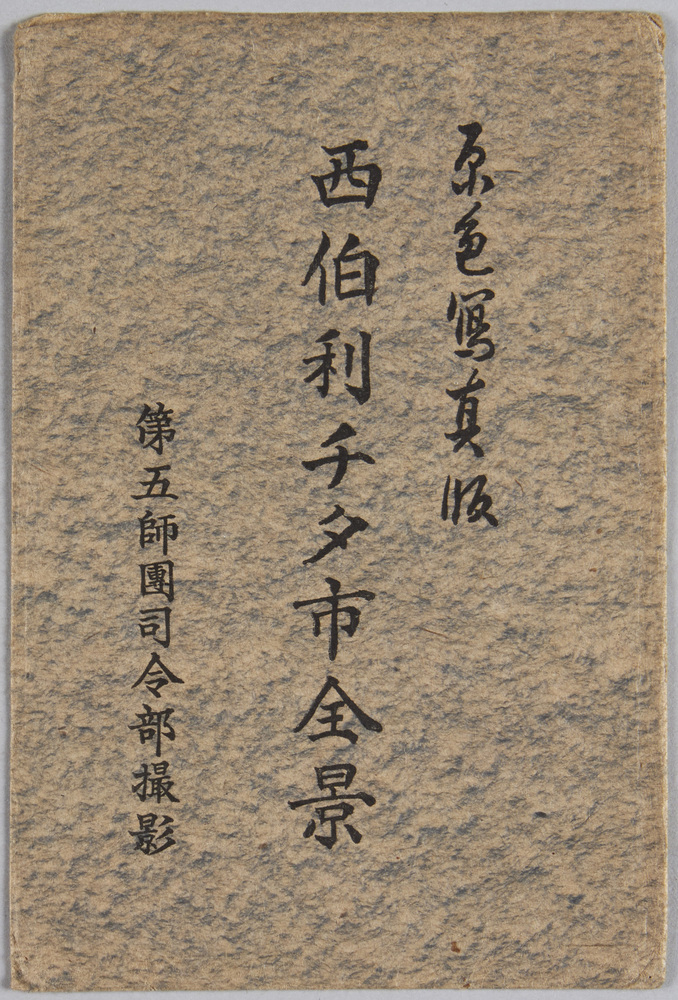 原色寫真版
西伯利チタ市全景
第五師團司令部撮影